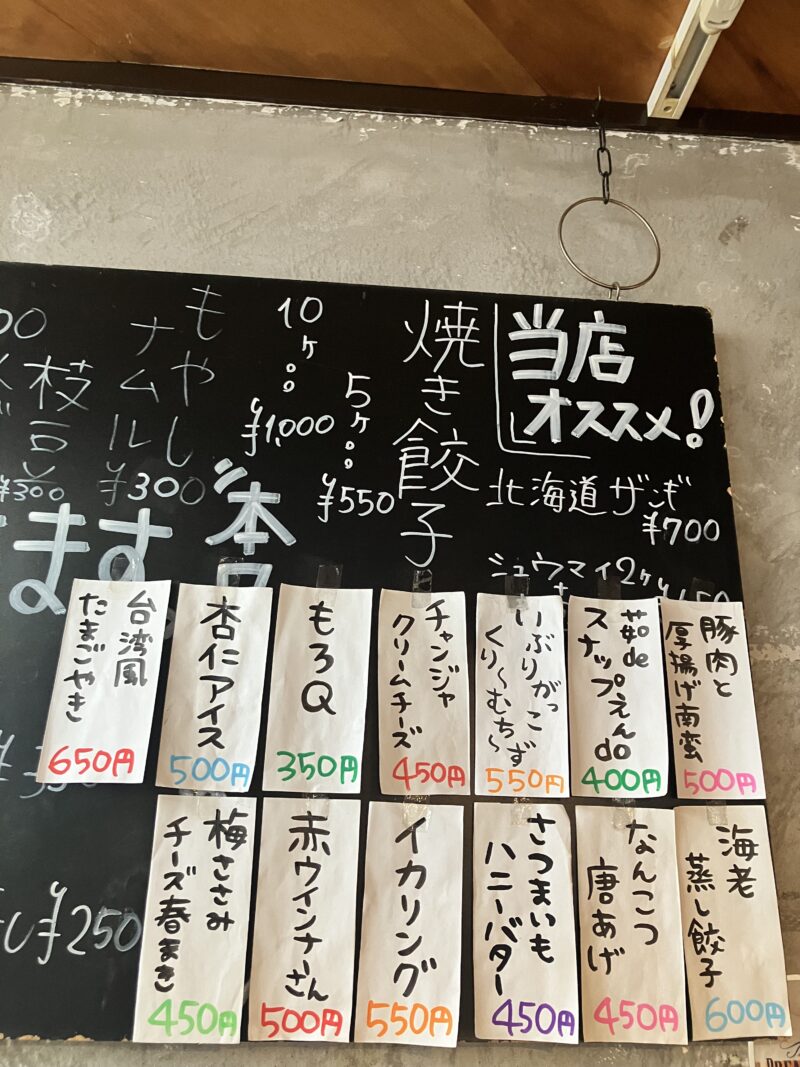 当店
オススメ!
北海道ザンギ
¥700
シュウマイ2ヶ
焼き餃子
5ヶ
¥550
10ヶ
¥1,000
もやし
ナムル
¥300
枝豆
¥300
ます。
豚肉と
厚揚げ南蛮
500円
茹de
スナップえんdo
400円
いぶりがっこ
くり〜むち〜ず
550円
チャンジャ
クリームチーズ
450円
もろQ
350円
杏仁アイス
500円
台湾風
たまごやき
650円
海老
蒸し餃子
600円
なんこつ
唐あげ
450円
さつまいも
ハニーバター
450円
イカリング
550円
赤ウインナーさん
500円
梅ささみ
チーズ春まき
450円
¥250